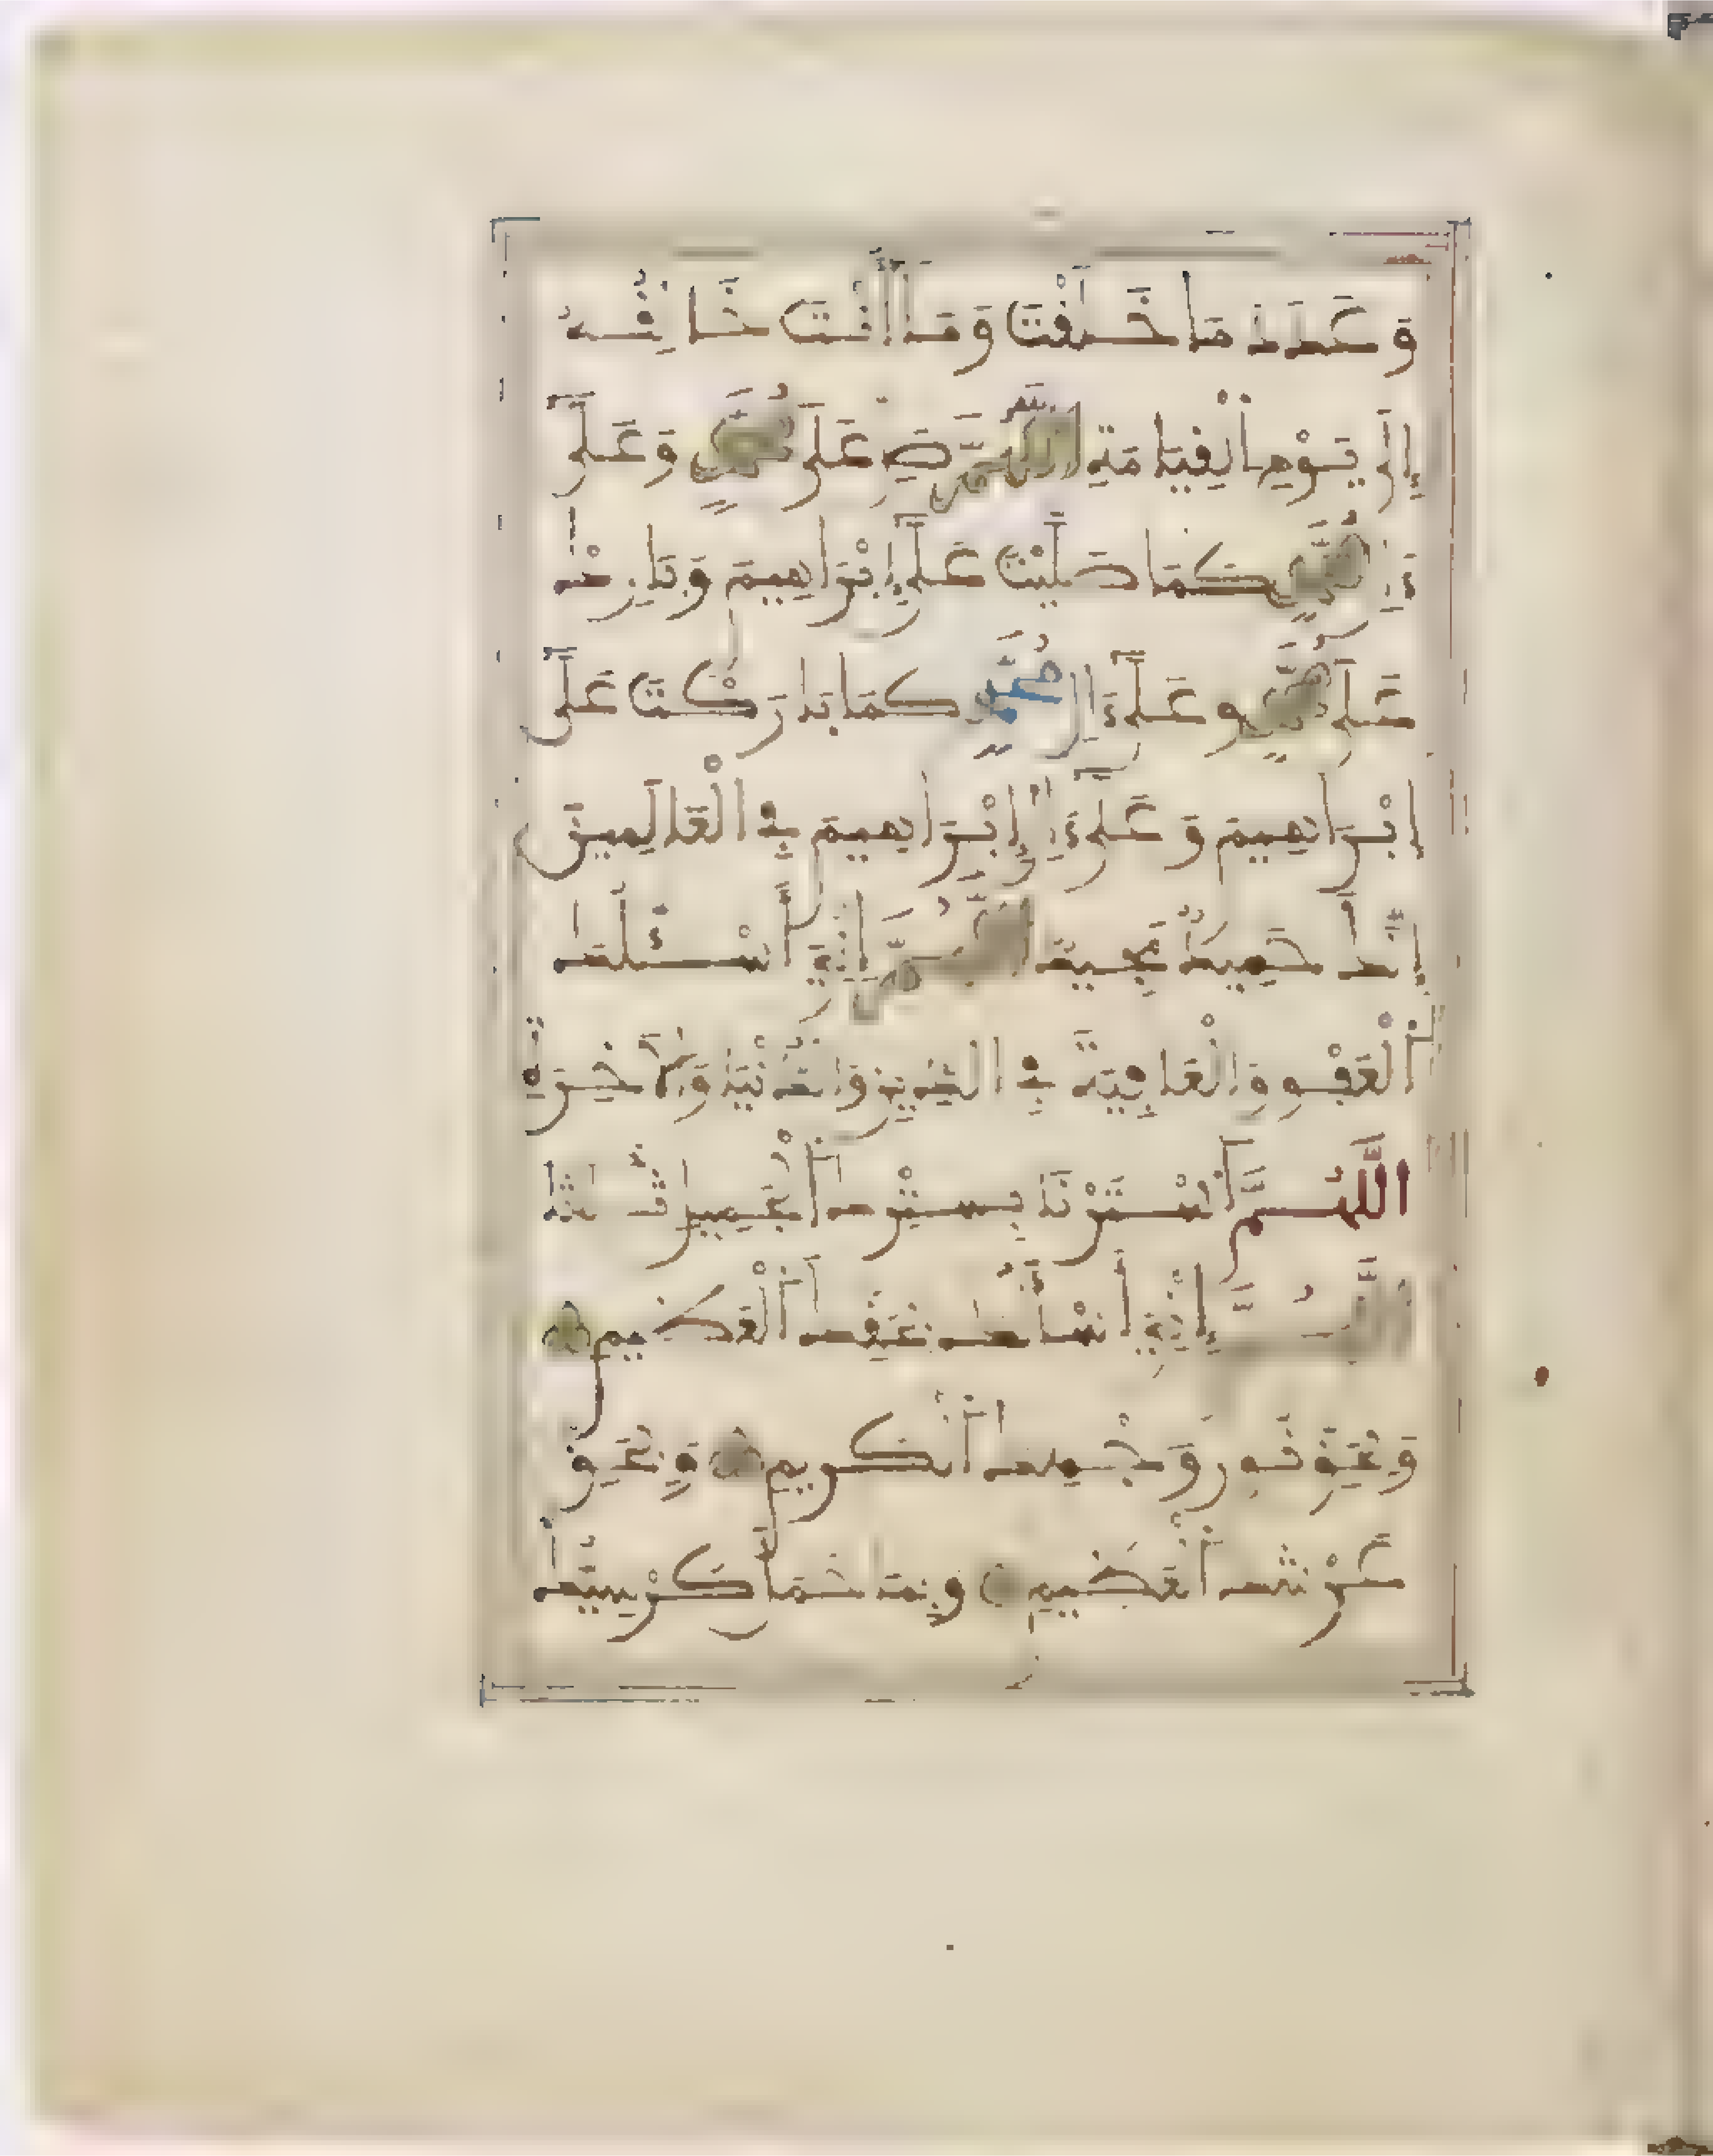 وَعَدَدَ مَا خَلَقْتَ وَمَا أَنْتَ خَالِقُهُ
إِلَى يَوْمِ الْقِيَامَةِ اللَّهُمَّ صَلِّ عَلَى مُحَمَّدٍ وَعَلَى
ءَالِ مُحَمَّدٍ كَمَا صَلَّيْتَ عَلَى إِبْرَاهِيمَ وَبَارِكْ
عَلَى مُحَمَّدٍ وَعَلَى ءَالِ مُحَمَّدٍ كَمَا بَارَكْتَ عَلَى
إِبْرَاهِيمَ وَعَلَى ءَالِ إِبْرَاهِيمَ فِي الْعَالَمِينَ
إِنَّكَ حَمِيدٌ مَجِيدٌ اللَّهُمَّ إِنِّي أَسْـَٔلُكَ
الْعَفْوَ وَالْعَافِيَةَ فِي الدِّينِ وَالدُّنْيَا وَالْآخِرَةِ
اللَّهُمَّ اسْتُرْنَا بِسِتْرِكَ الْجَمِيلِ
اللَّهُمَّ إِنِّي أَسْأَلُكَ بِحَقِّكَ الْعَظِيمِ
وَبِحَقِّ نُورِ وَجْهِكَ الْكَرِيمِ وَبِحَقِّ
عَرْشِكَ الْعَظِيمِ وَبِمَا حَمَلَ كُرْسِيُّكَ